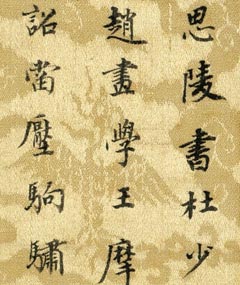 思陵書杜少
趙畫學王摩
詰當壓駒驌